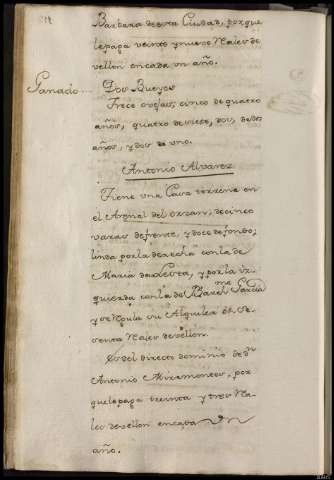 Barbara de esta Ciudad, porque
le paga veinte y nueve Rales de
vellon en cada un año.
Ganado... Dos Bueyes
Trece ovejas, cinco de quatro
años, quatro de siete, dos, de dos
años, y dos de uno.
Antonio Alvarez
Tiene una Casa terrena en
el Arenal del Orzan, de cinco
varas de frente, y doce de fondo;
linda por la derecha con la de
Maria da 
y por la iz-
quierda con la de Manl. Garcia
y se Regula su Alquiler en Se-
senta Rales de vellon.
Es del directo dominio de Dn
Antonio Miramontes, por
que le paga treinta y tres Ra-
les de vellon en cada un
año.